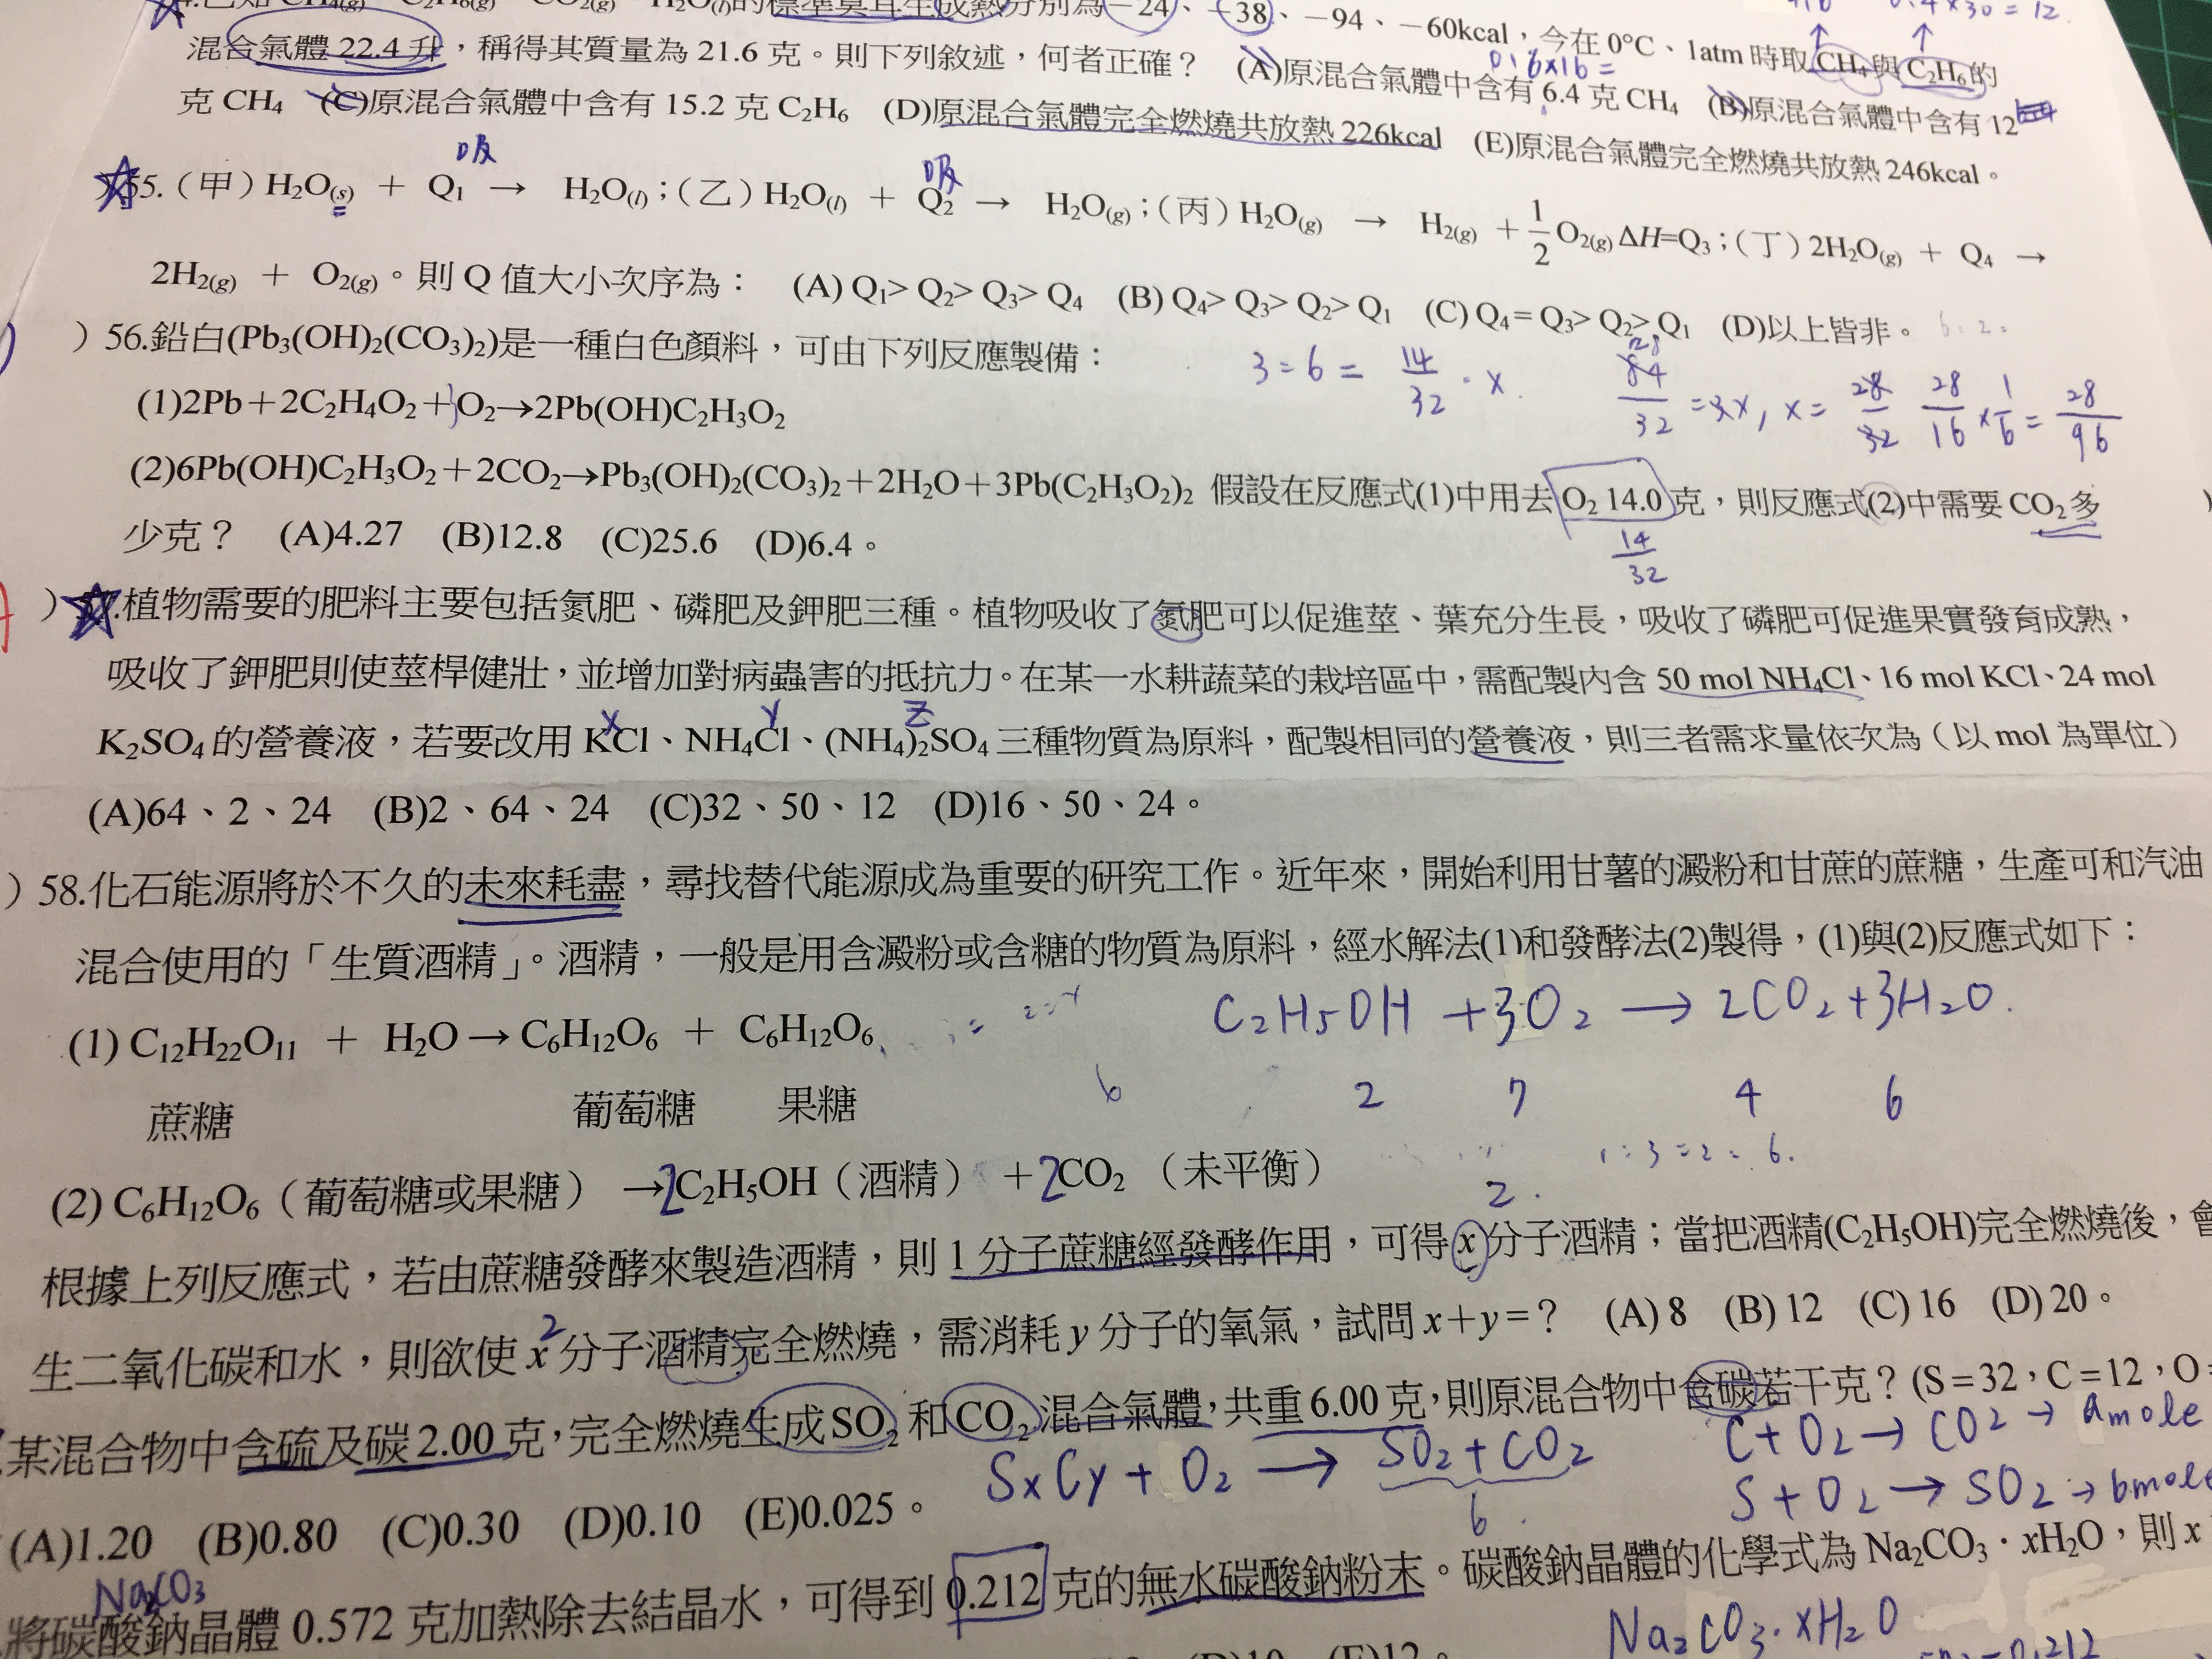 4.已知 CH₄(g)、C₂H₆(g)、CO₂(g)、H₂O(l)的標準莫耳生成熱分別為－24、－38、－94、－60kcal，今在0°C、1atm 時取 CH₄與C₂H₆的
0.4×30 = 12
混合氣體 22.4 升，稱得其質量為 21.6 克。則下列敘述，何者正確？ (A)原混合氣體中含有 6.4 克 CH₄ (B)原混合氣體中含有 12
克 CH₄ (C)原混合氣體中含有 15.2 克 C₂H₆ (D)原混合氣體完全燃燒共放熱 226kcal (E)原混合氣體完全燃燒共放熱 246kcal。
吸 吸
55.（甲）H₂O(s) ＋ Q₁ → H₂O(l)；（乙）H₂O(l) ＋ Q₂ → H₂O(g)；（丙）H₂O(g) → H₂(g) ＋ 1/2 O₂(g) ΔH=Q₃；（丁）2H₂O(g) ＋ Q₄ →
2H₂(g) ＋ O₂(g)。則 Q 值大小次序為： (A) Q₁> Q₂> Q₃> Q₄ (B) Q₄> Q₃> Q₂> Q₁ (C) Q₄＝Q₃> Q₂> Q₁ (D)以上皆非。
）56.鉛白(Pb₃(OH)₂(CO₃)₂)是一種白色顏料，可由下列反應製備：
3 = 6 = 14/32 · x
84/32 = 3x, x = 28/32 28/16 × 1/6 = 28/96
(1)2Pb＋2C₂H₄O₂＋O₂→2Pb(OH)C₂H₃O₂
(2)6Pb(OH)C₂H₃O₂＋2CO₂→Pb₃(OH)₂(CO₃)₂＋2H₂O＋3Pb(C₂H₃O₂)₂ 假設在反應式(1)中用去 O₂ 14.0 克，則反應式(2)中需要 CO₂多
少克？ (A)4.27 (B)12.8 (C)25.6 (D)6.4。
14/32
）57.植物需要的肥料主要包括氮肥、磷肥及鉀肥三種。植物吸收了氮肥可以促進莖、葉充分生長，吸收了磷肥可促進果實發育成熟，
吸收了鉀肥則使莖桿健壯，並增加對病蟲害的抵抗力。在某一水耕蔬菜的栽培區中，需配製內含 50 mol NH₄Cl、16 mol KCl、24 mol
X Y Z
K₂SO₄ 的營養液，若要改用 KCl、NH₄Cl、(NH₄)₂SO₄ 三種物質為原料，配製相同的營養液，則三者需求量依次為（以 mol 為單位）
(A)64、2、24 (B)2、64、24 (C)32、50、12 (D)16、50、24。
）58.化石能源將於不久的未來耗盡，尋找替代能源成為重要的研究工作。近年來，開始利用甘薯的澱粉和甘蔗的蔗糖，生產可和汽油
混合使用的「生質酒精」。酒精，一般是用含澱粉或含糖的物質為原料，經水解法(1)和發酵法(2)製得，(1)與(2)反應式如下：
C₂H₅OH + 3O₂ → 2CO₂ + 3H₂O.
(1) C₁₂H₂₂O₁₁ ＋ H₂O → C₆H₁₂O₆ ＋ C₆H₁₂O₆
6 2 7 4 6
蔗糖 葡萄糖 果糖
1 = 3 = 2 = 6.
(2) C₆H₁₂O₆（葡萄糖或果糖） → 2C₂H₅OH（酒精） ＋ 2CO₂ （未平衡）
2.
根據上列反應式，若由蔗糖發酵來製造酒精，則 1 分子蔗糖經發酵作用，可得 x 分子酒精；當把酒精(C₂H₅OH)完全燃燒後，會
2
生二氧化碳和水，則欲使 x 分子酒精完全燃燒，需消耗 y 分子的氧氣，試問 x＋y＝？ (A) 8 (B) 12 (C) 16 (D) 20。
某混合物中含硫及碳 2.00 克，完全燃燒生成 SO₂ 和 CO₂ 混合氣體，共重 6.00 克，則原混合物中含碳若干克？(S＝32，C＝12，O
SxCy + O₂ → SO₂ + CO₂
6.
C + O₂ → CO₂ → a mole
S + O₂ → SO₂ → b mole
(A)1.20 (B)0.80 (C)0.30 (D)0.10 (E)0.025。
Na₂CO₃
將碳酸鈉晶體 0.572 克加熱除去結晶水，可得到 0.212 克的無水碳酸鈉粉末。碳酸鈉晶體的化學式為 Na₂CO₃．xH₂O，則 x
Na₂CO₃·xH₂O
(D)10 (E)12。